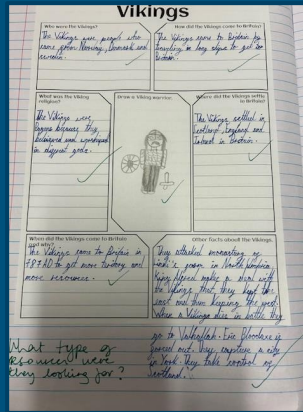 Vikings
Who were the Vikings?
The Vikings were people who
came from Norway, Denmark and
sweden.
How did the Vikings come to Britain?
The Vikings came to Britain by
travelling in long ships to get to
Britain.
What was the Viking
religion?
The Vikings were
Pagans because they
believed and worshiped
in different gods.
Draw a Viking warrior.
Where did the Vikings settle
in Britain?
The Vikings settled in
Scotland, England and
Ireland in Britain.
When did the Vikings come to Britain
and why?
The Vikings came to Britain in
787AD to get more territory and
more resources.
Other facts about the Vikings.
They attacked monastery of
in North
King Alfred makes a deal with
the Vikings that they kept the
east and them keeping the west.
When a Vikings dies in battle they
go to Valhallah. Eric Bloodaxe is
forced out. They capture a city
They take control of
Scotland.
What type of
resources were
they looking for?